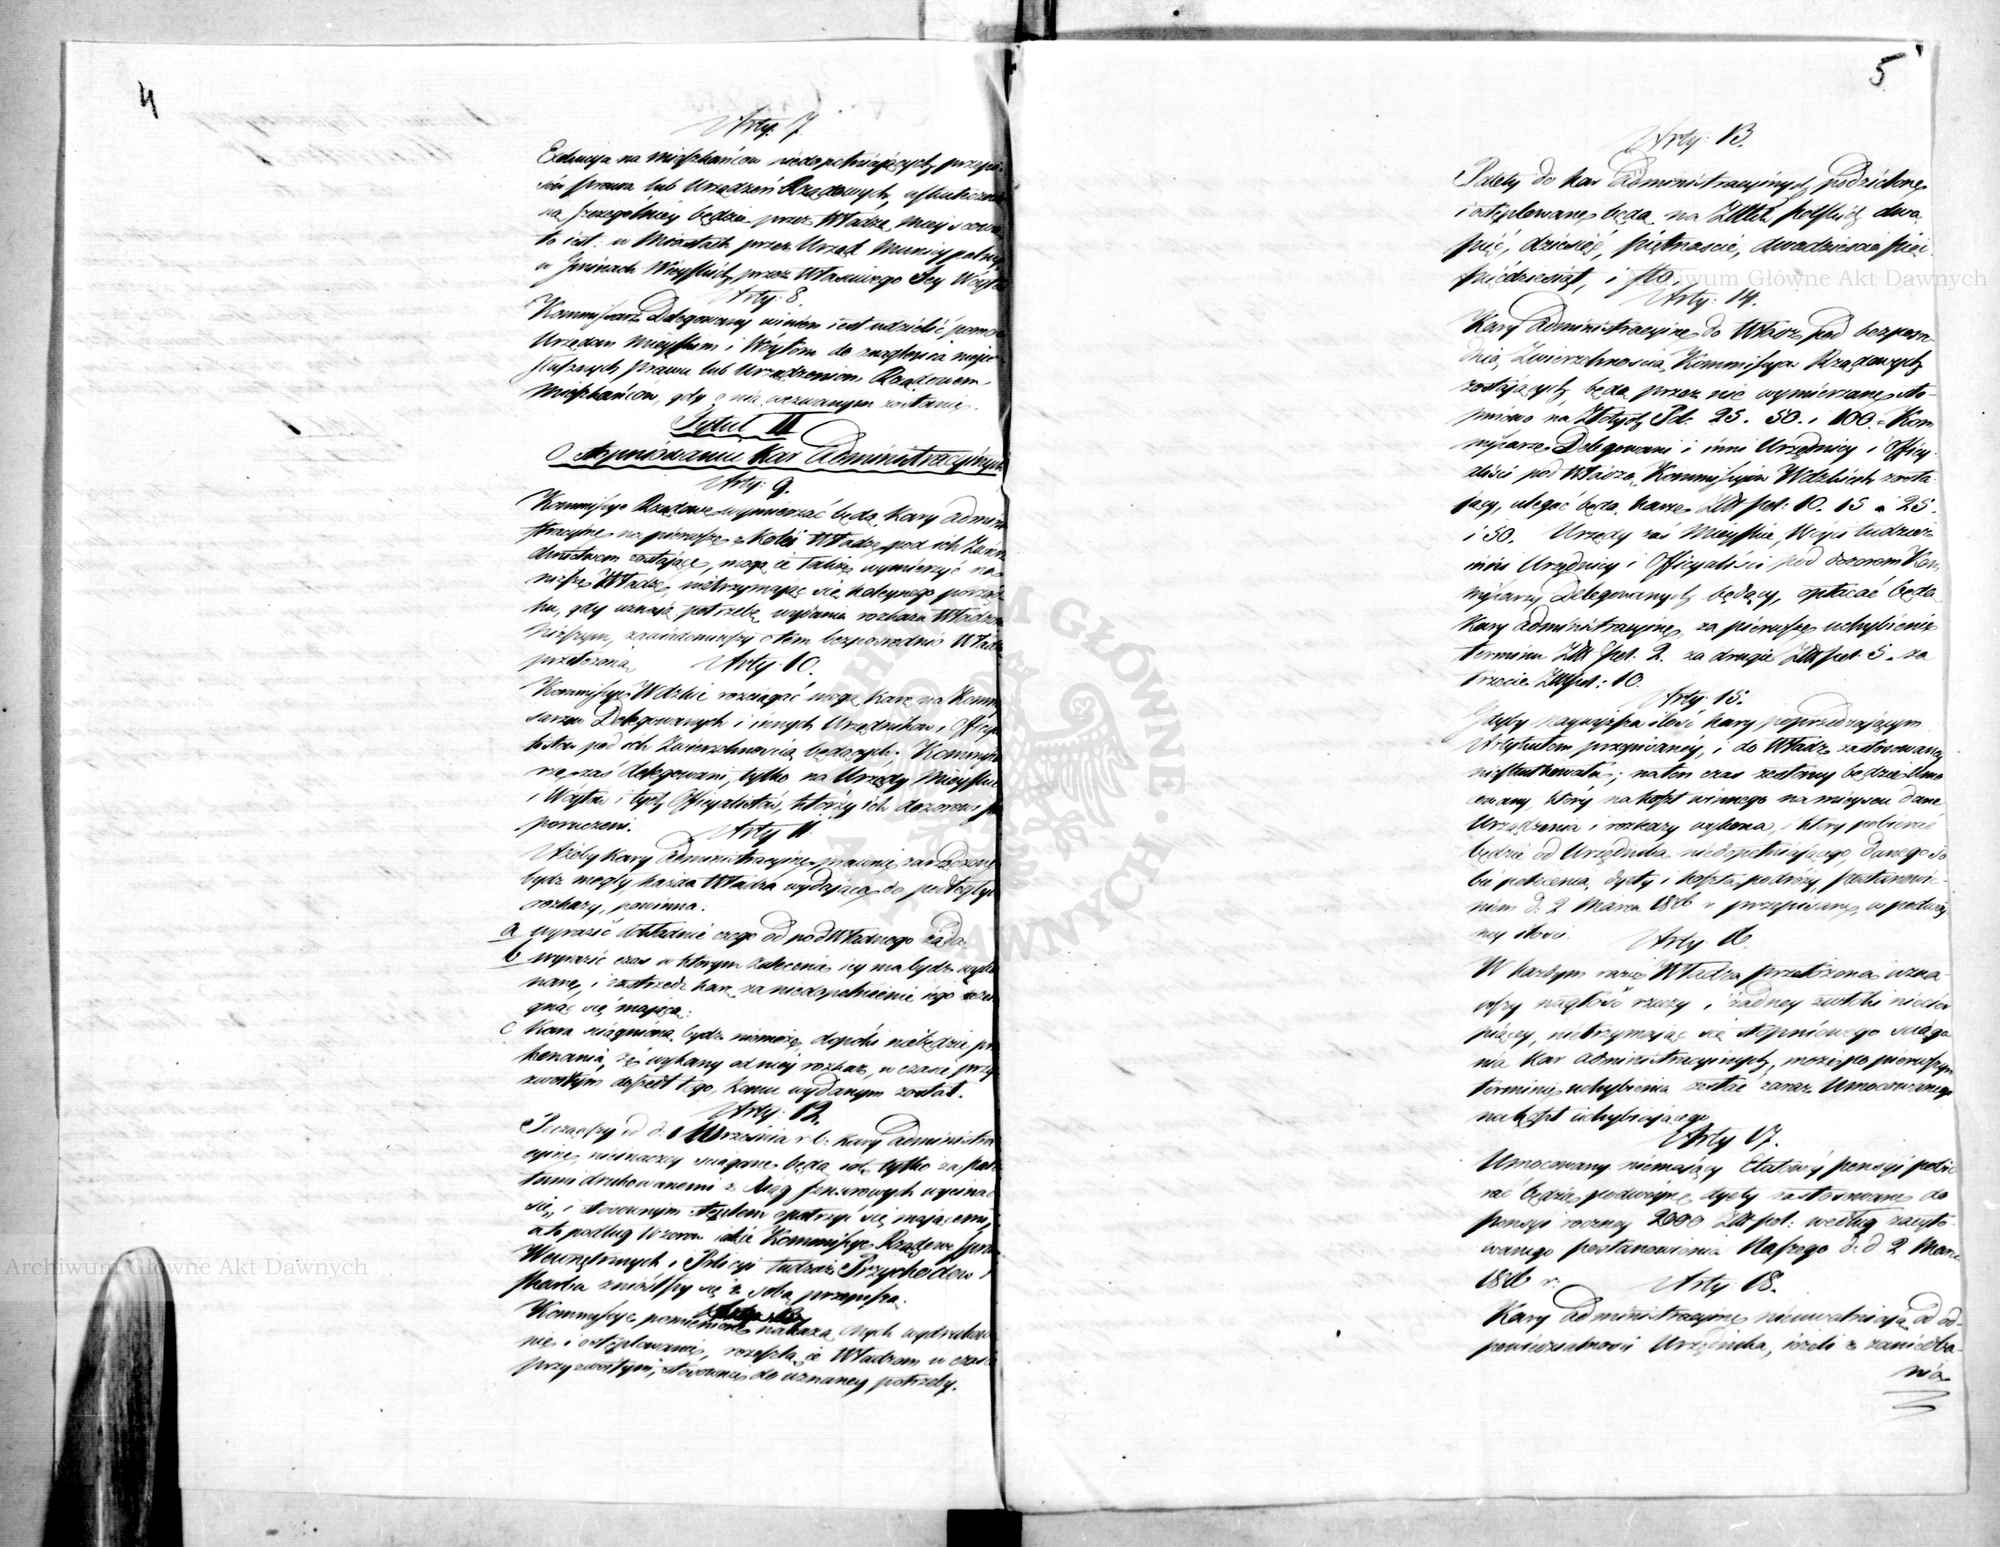 4
Arty. 7.
Exekucja na mieszkańców niedopełniających przepi-
sów prawa lub Urządzeń Rządowych, uskutecznio-
ną szczególniey będzie przez Władzę Mieyscową
to iest: w Miastach przez Urząd Municypalny
w Gminach Wieyskich, przez Właściwego Jey Wóyta
Arty: 8.
Kommissarz Delegowany winien iest udzielić pomoc
Urzędom Mieyskim i Wóytom do naglenia niepo-
słusznych prawu lub Urządzeniom Rządowem
Mieszkańców, gdy o nią wezwanym zostanie.
Tytuł II
O Stopniowaniu Kar Administracyinych
Arty: 9.
Kommissye Rządowe wymierzać będą Kary admini
stracyine na pierwsze z kolei Władze pod ich Zwierz
chnictwem zostaiące, mogą ie także wymierzyć na
niższe Władze, nietrzymaiąc się koleynego porząd-
ku, gdy uznaią potrzebę wydania rozkazu Władzom
niższym, zawiadomiwszy o tem bezpośrednio Władzę
przełożoną. Arty: 10.
Kommissye Wdzkie rozciągać mogą karę na Kommis
sarzy Delegowanych i innych Urzędników i Officya
listów pod ich Zwierzchnością będących; Kommissa
rze zaś delegowani, tylko na Urzędy Mieyskie
i Wóytów i tych Officyalistów, którzy ich dozorowi są
poruczeni. Arty 11.
Ażeby Kary Administracyine prawnie zarządzone
bydź mogły, każda Władza wydaiąca do podległych
rozkazy, powinna:
a wyrazić dokładnie czego od podwładnego żąda.
b wyrazić czas w którym zalecenie iey ma bydź wyko
nane, i zastrzedz karę za niedopełnienie iego ścią
gnąć się maiącą:
c Kara ściągniona bydź niemoże, dopóki niebędzie prze
konania, że wydany od niey rozkaz, w czasie przy
zwoitym doszedł tego, komu wydanym został.
Arty: 12.
Począwszy od d. 1 Września r. b. kary administra
cyine nieinaczey ściągane będą iak tylko za kwi
tami drukowanemi z Xiąg sznurowych wycinać
się, i stosownym stęplem opatrzyć się maiącemi,
a to podług wzorów iakie Kommissye Rządowe Spraw
Wewnętrznych i Policyi tudzież Przychodów i
Skarbu zniósłszy się z sobą przepiszą.
Kommissye pomienione nakażą onych wydrukowa
nie i ostęplowanie, rozeszlą ie Władzom w czasie
przyzwoitym, stosownie do uznaney potrzeby.
5
Arty: 13.
Palety do kar Administracyinych podzielone
i ostęplowane będą na Złotych polskich dwa,
pięć, dziesięć, piętnaście, dwadzieścia pięć
pięćdziesiąt, i sto.
Arty: 14.
Kary administracyine do Władz pod bezpośre-
dnią Zwierzchnością Kommissyow Rządowych
zostaiących, będą przez nie wymierzane sto-
pniowo na Złotych Pol. 25. 50. i 100. Kom
missarze Delegowani i inni Urzędnicy i Officy-
aliści pod Władzą Kommissyow Wdzkich zosta
iący, ulegać będą karze Złł pol: 10. 15 a 25.
i 50. Urzędy zaś Mieyskie, Wóyci tudzież
inni Urzędnicy i Officyaliści pod dozorem Kom
missarzy Delegowanych będący, opłacać będą
Kary administracyine za pierwsze uchybienie
terminu Złł pol. 2. za drugie Złł pol. 5. za
trzecie Złł pol: 10.
Arty: 15.
Gdyby naywyższa ilość kary poprzedzaiącym
Artykułem przepisaney, i do Władz zastosowaney
nieskutkowała; na ten czas zesłany będzie Umo
cowany, który na koszt winnego na mieyscu dane
Urządzenia i rozkazy wykona, i który pobierać
będzie od Urzędnika niedopełniaiącego, danego so
bie polecenia, dyety i koszta podróży postanowie-
niem d: 2 Marca 1816 r. przepisane, w podwóy
ney ilości. Arty 16.
W każdym razie Władza przełożona uzna
wszy nagłość rzeczy, i żadney zwłoki niecier
piącey, nietrzymaiąc się stopniowego ściąga
nia kar administracyinych, może po pierwszym
terminie uchybienia zesłać zaraz Umocowanego
na koszt uchybiaiącego.
Arty 17.
Umocowany niemaiący Etatowey pensyi pobie
rać będzie podwóyne dyety zastosowane do
pensyi roczney 2000 Złł pol: według zacyto-
wanego postanowienia Naszego d. d 2 Marca
1816 r. Arty 18.
Kary Administracyine nieuwalniaią od od-
powiedzialności Urzędnika, ieżeli z zaniedba-
nia
Archiwum Główne Akt Dawnych
Archiwum Główne Akt Dawnych
ARCHIWUM GŁÓWNE AKT DAWNYCH